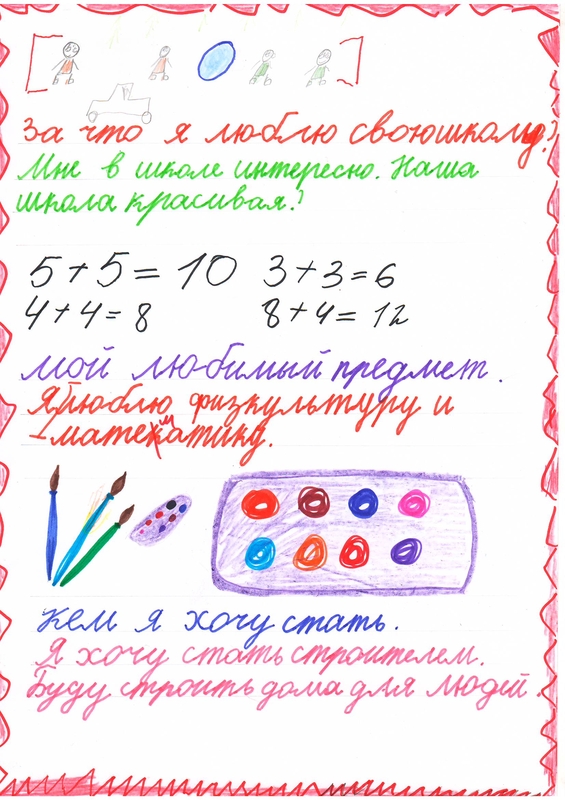 За что я люблю своюшколу?
Мне в школе интересно. Наша
школа красивая.
5+5=10 3+3=6
4+4=8 8+4=12
мой любимый предмет.
Я люблю физкультуру и
математику.
Кем я хочу стать.
Я хочу стать строителем.
Буду строить дома для людей